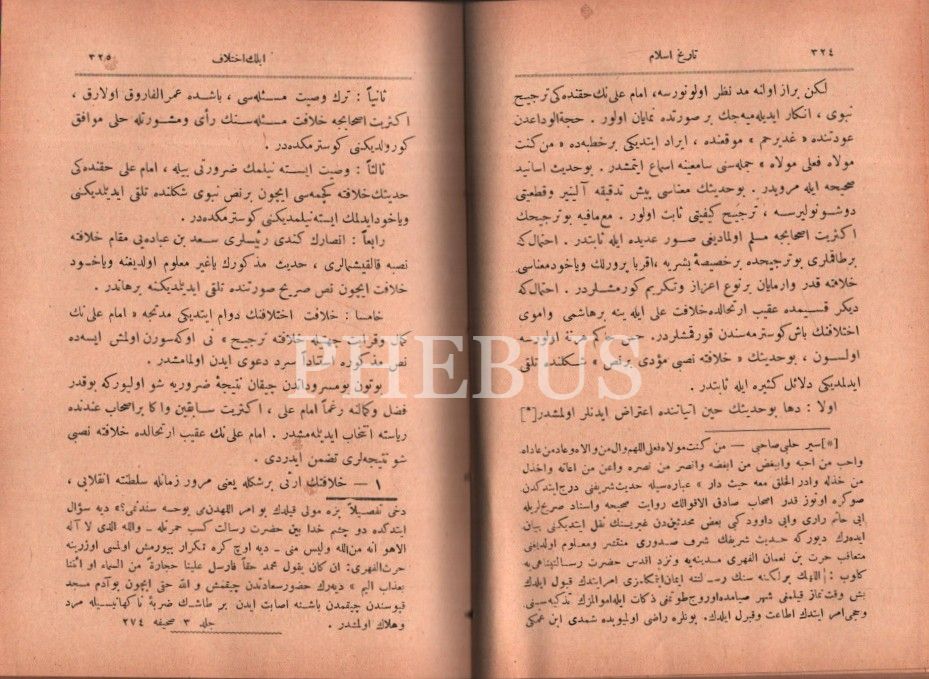 ٣٢٤
تاریخ اسلام
لکن براز اوانه مد نظر اولونورسه، امام علی نك حقنده کی ترجیح
نبوی، انکار ایدیله میه جك بر صورتده نمایان اولور. حجةالوداعدن
عودتنده « غدیرخم » موقعنده، ایراد ایتدیکی برخطبه ده « من کنت
مولاه فعلی مولاه » جمله سنی سامعینه اسماع ایتمشدر. بوحدیث اسانید
صحیحه ایله مرویدر. بوحدیثك معناسی پیش تدقیقه آلینیر وقطعیتی
دوشونولیرسه، ترجیح کیفیتی ثابت اولور. مع مافیه بوترجیحك
اکثریت اصحابجه مسلم اولمادیغی صور عدیده ایله ثابتدر. احتمال که
برطاقملری بوترجیحده برخصیصهٔ بشریه، اقربا پرورلك ویاخود معناسی
خلافته قدر وارمایان برنوع اعزاز وتکریم کورمشلردر. احتمال که
دیکر قسمیده عقیب ارتحالده خلافت علی ایله ینه برهاشمی واموی
اختلافنك باش کوسترمه سندن قورقمشلردر.
اولسون، بوحدیثك « خلافته نصبی مؤدی برنص » شکلنده تلقی
ایدلمدیکی دلائل کثیره ایله ثابتدر.
اولا : دها بوحدیثك حین اتیاننده اعتراض ایدنلر اولمشدر[*]
[*] سیر حلبی صاحبی — من کنت مولاه فعلی مولاه اللهم وال من والاه وعاد من عاداه
واحب من احبه وابغض من ابغضه وانصر من نصره واعن من اعانه واخذل
من خذله وادر الحق معه حیث دار » عباره سیله حدیث شریفی درج ایتدکدن
صوکره اوتوز قدر اصحاب صادق الاقوالك روایت صحیحه واسناد صریحلریله
ابی حاتم رازی وابی داوود کی بعض محدثیندن غیریسنك نقل ایتدیکنی بیان
ایده رك دیورکه حدیث شریفك شرف صدوری منتشر ومعلوم اولدیغنی
متعاقب حرث بن نعمان الفهری مدینه یه ونزد اقدس حضرت رسالتپناهی یه
کلوب : اللهك برلکنه سنك رسالتنه ایمان ایتمکلکمزی امر ایتدك قبول ایلدك
بش وقت نماز قیلمغی شهر صیامده اوروج طوتمغی ذکات ایله اموالمزك تذکیه سنی
وحجی امر ایتدك اطاعت وقبول ایلدك. بونلره راضی اولمیوبده شمدی ابن عمکی
٣٢٥
ایلك اختلاف
ثانیاً : ترك وصیت مسئله سی، باشده عمر الفاروق اولارق،
اکثریت اصحابجه خلافت مسئله سنك رأی ومشورتله حلی موافق
کورولدیکنی کوسترمکده در.
ثالثاً : وصیت ایسته نیلمك ضرورتی بیله، امام علی حقنده کی
حدیثك خلافته کچمه سی ایچون برنص نبوی شکلنده تلقی ایدیلمدیکنی
ویاخود ایدلمك ایسته نیلمدیکنی کوسترمکده در.
رابعاً : انصارك کندی رئیسلری سعد بن عباده یی مقام خلافته
نصبه قالقیشمالری، حدیث مذکورك یاغیر معلوم اولدیغنه ویاخود
خلافت ایچون نص صریح صورتنده تلقی ایدیلمدیکنه برهاندر.
خامسا : خلافت اختلافنك دوام ایتدیکی مدتجه « امام علی نك
کمال وقرابت جهتیله خلافته ترجیح » نی اوکه سورن اولمش ایسه ده
نص مذکوره استناداً سرد دعوی ایدن اولمامشدر.
بوتون بومسروداتدن چیقان نتیجهٔ ضروریه شو اولیورکه بوقدر
فضل وکماله رغماً امام علی، اکثریت سابقین واکابر اصحاب عندنده
ریاسته انتخاب ایدیله مشدر. امام علی نك عقیب ارتحالده خلافته نصبی
شو نتیجه لری تضمن ایدردی.
١ — خلافتك ارثی برشکله یعنی مرور زمانله سلطنته انقلابی،
دخی تفصیلاً بزه مولی قیلدك بو امر اللهدن می یوخسه سندنمی؟ دیه سؤال
ایتدکده دو چشم خدا بین حضرت رسالت کسب حمرتله — والله الذی لا آله
الاهو انه من الله ولیس منی — دیه اوچ کره تکرار بیورمش اولمسی اوزرینه
حرث الفهری : ان کان یقول محمد حقاً فارسل علینا حجارة من السماء او ائتنا
بعذاب الیم » دیه رك حضور سعادتدن چیقمش و الله حتی ایچون بوآدم مسجد
قپوسندن چیقمدن باشنه اصابت ایدن بر طاشك ضربهٔ ناکهانیسیله مرد
وهلاك اولمشدر. جلد ٣ صحیفه ٢٧٤
PHEBUS